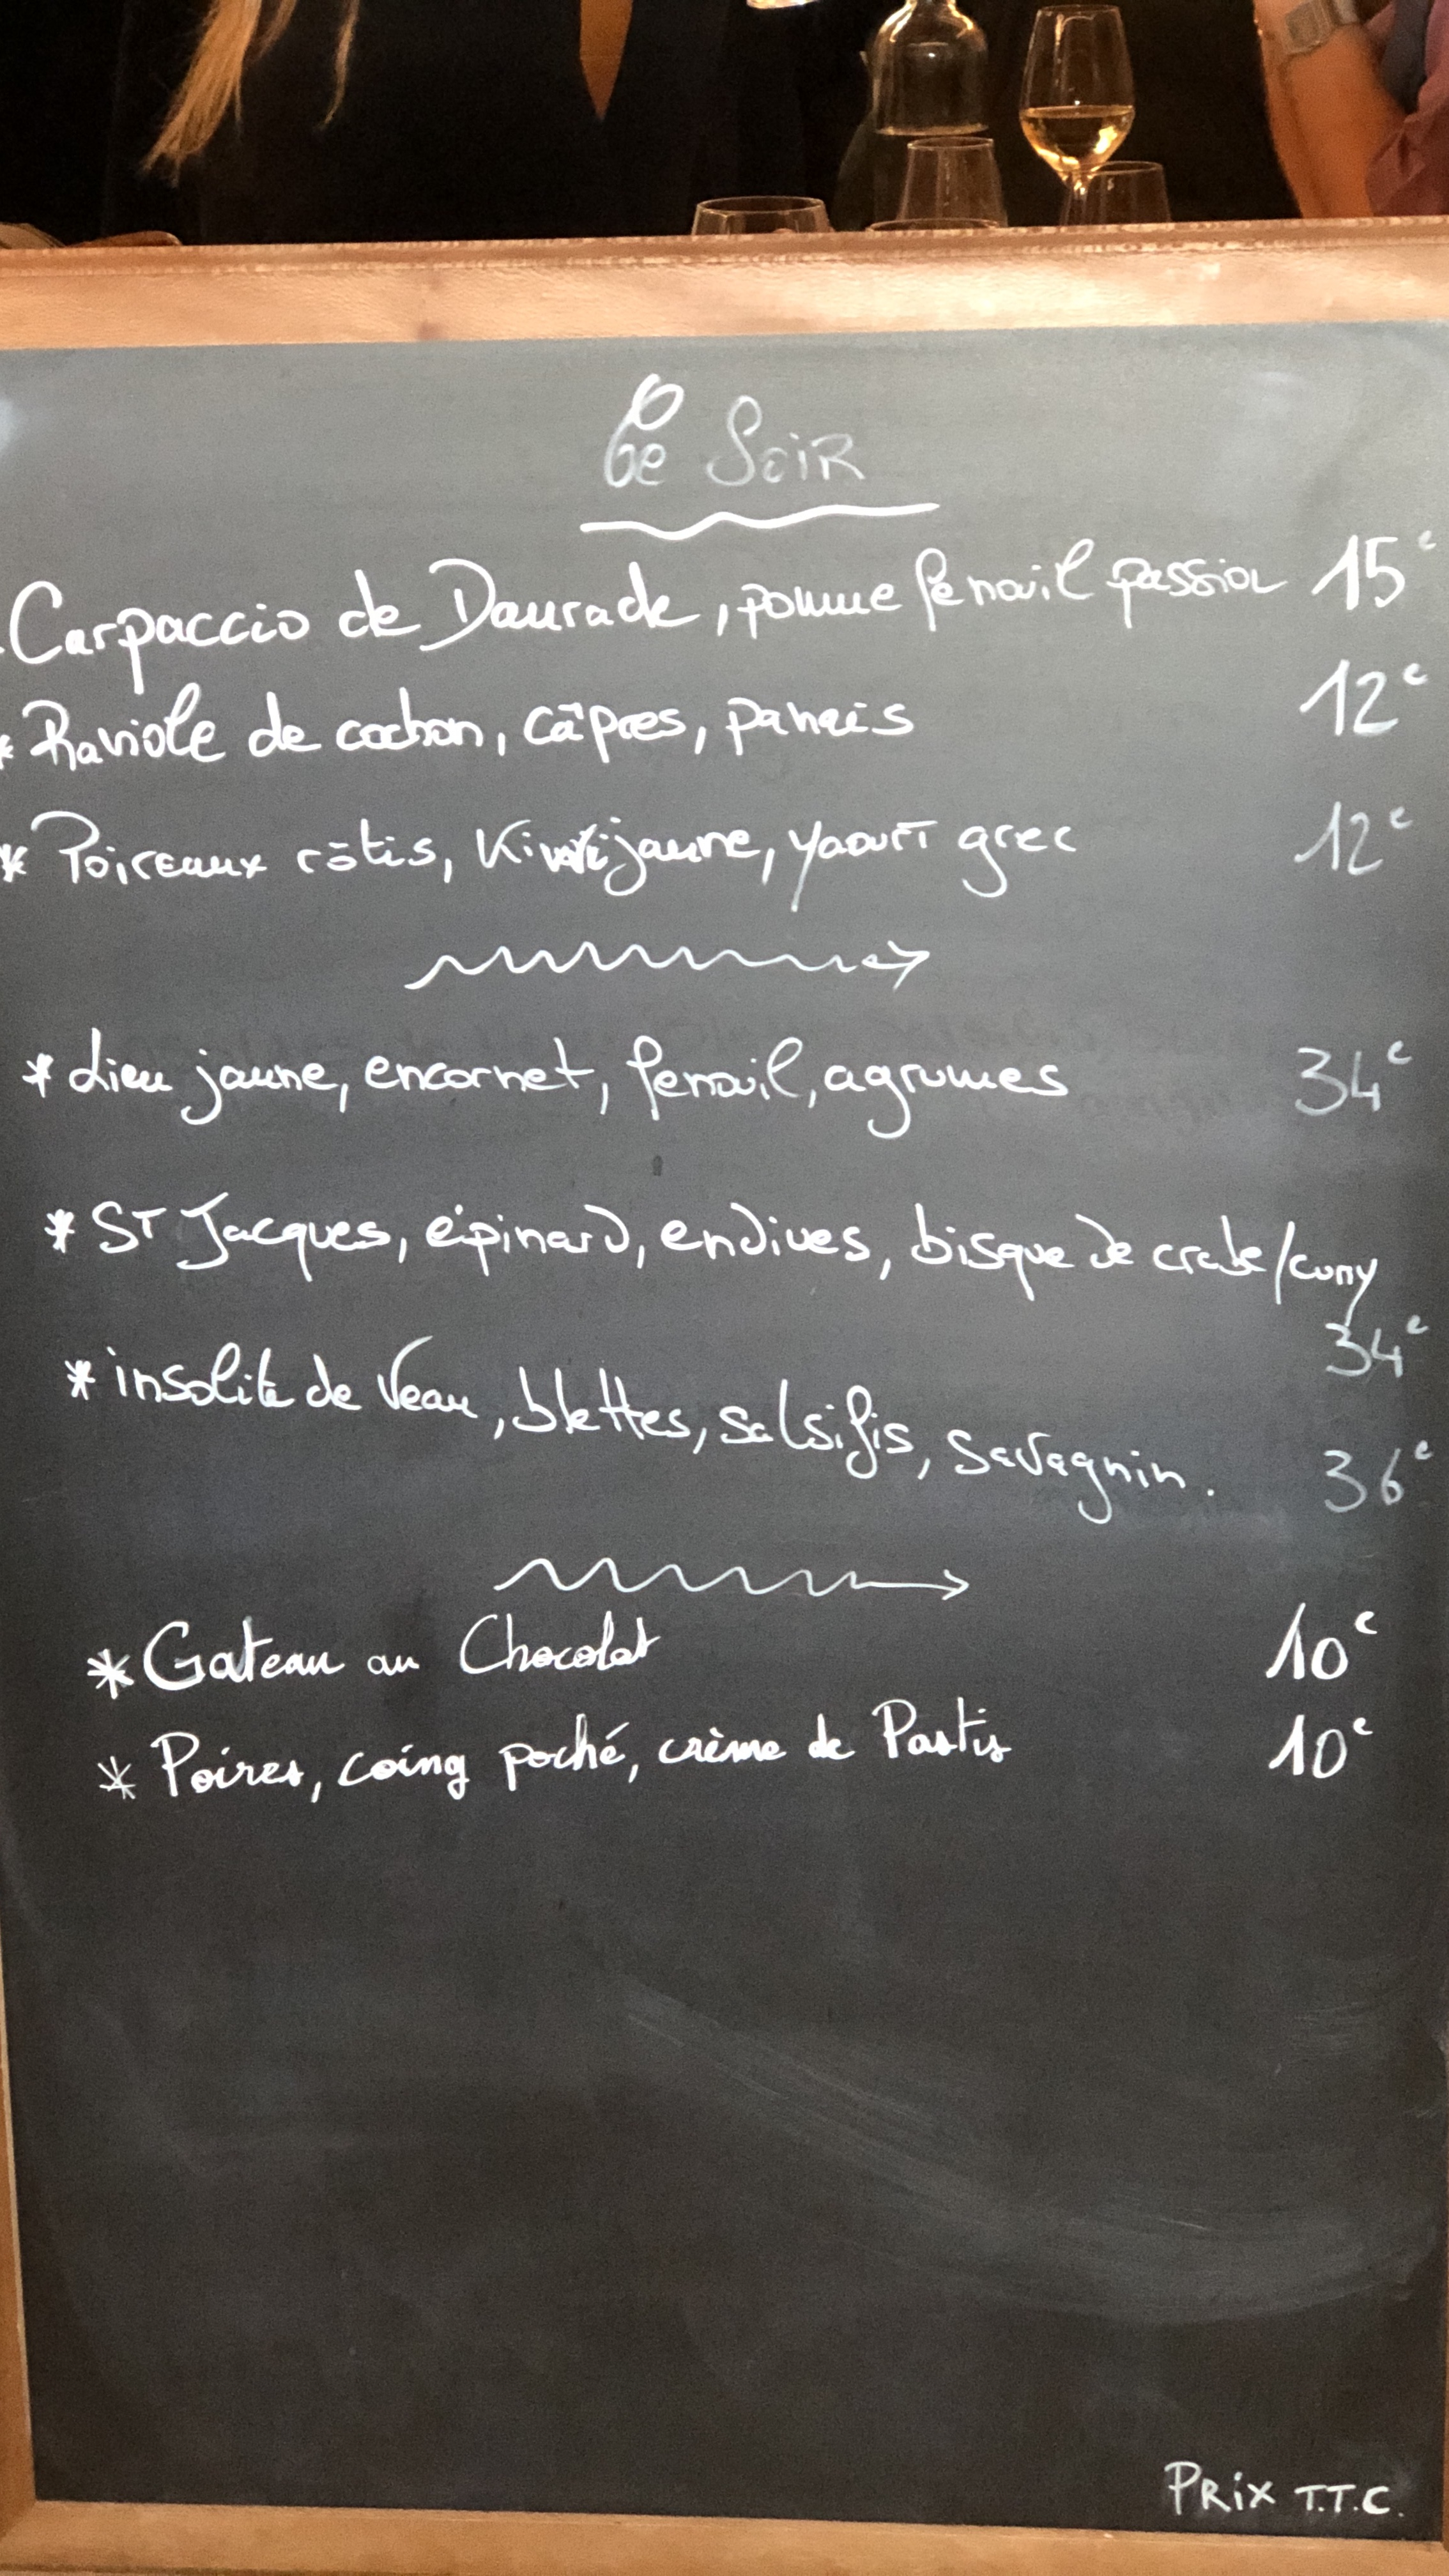 Ce Soir
Carpaccio de Daurade, pomme fenouil passion 15€
* Raviole de cochon, câpres, panais 12€
* Poireaux rôtis, Kiwi jaune, yaourt grec 12€
* Lieu jaune, encornet, fenouil, agrumes 34€
* ST Jacques, épinard, endives, bisque de crabe/curry
34€
* insolite de Veau, blettes, salsifis, savagnin. 36€
* Gateau au Chocolat 10€
* Poires, coing poché, crème de Pastis 10€
PRIX T.T.C.